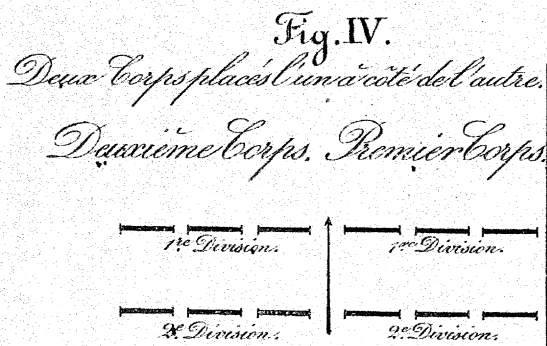 Fig. IV.
Deux Corps placés l'un à côté de l'autre.
Deuxième Corps. Premier Corps.
1re Division. 1re Division.
2e Division. 2e Division.